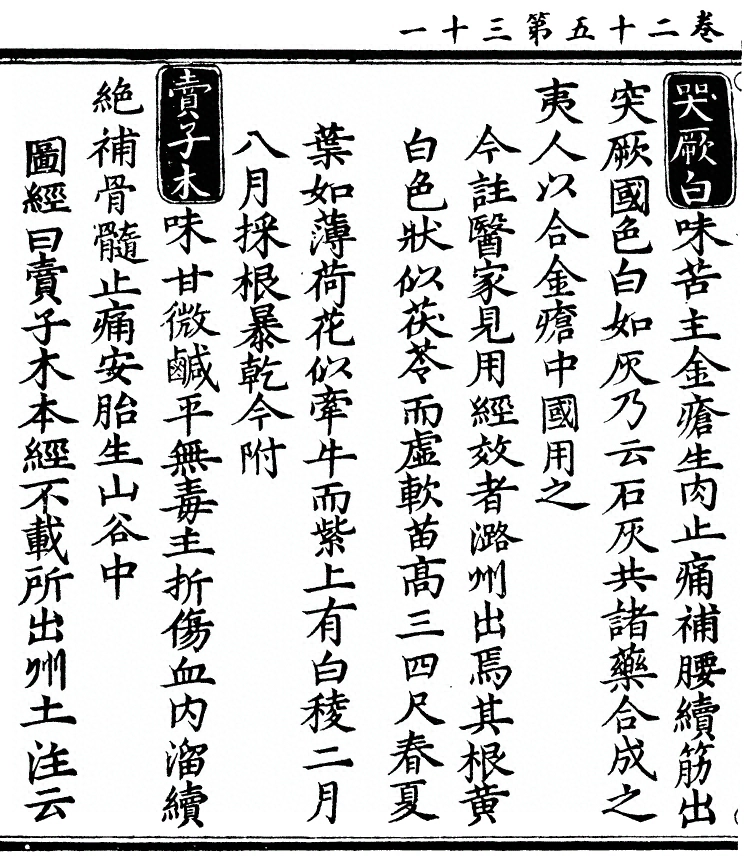 卷二十五第三十一
突厥白味苦主金瘡生肉止痛補腰續筋出
突厥國色白如灰乃云石灰共諸藥合成之
夷人以合金瘡中國用之
今註醫家見用經效者潞州出焉其根黄
白色狀似茯苓而虛軟苗高三四尺春夏
葉如薄荷花似牽牛而紫上有白稜二月
八月採根暴乾今附
賣子木味甘微鹹平無毒主折傷血内溜續
絶補骨髓止痛安胎生山谷中
圖經曰賣子木本經不載所出州土注云